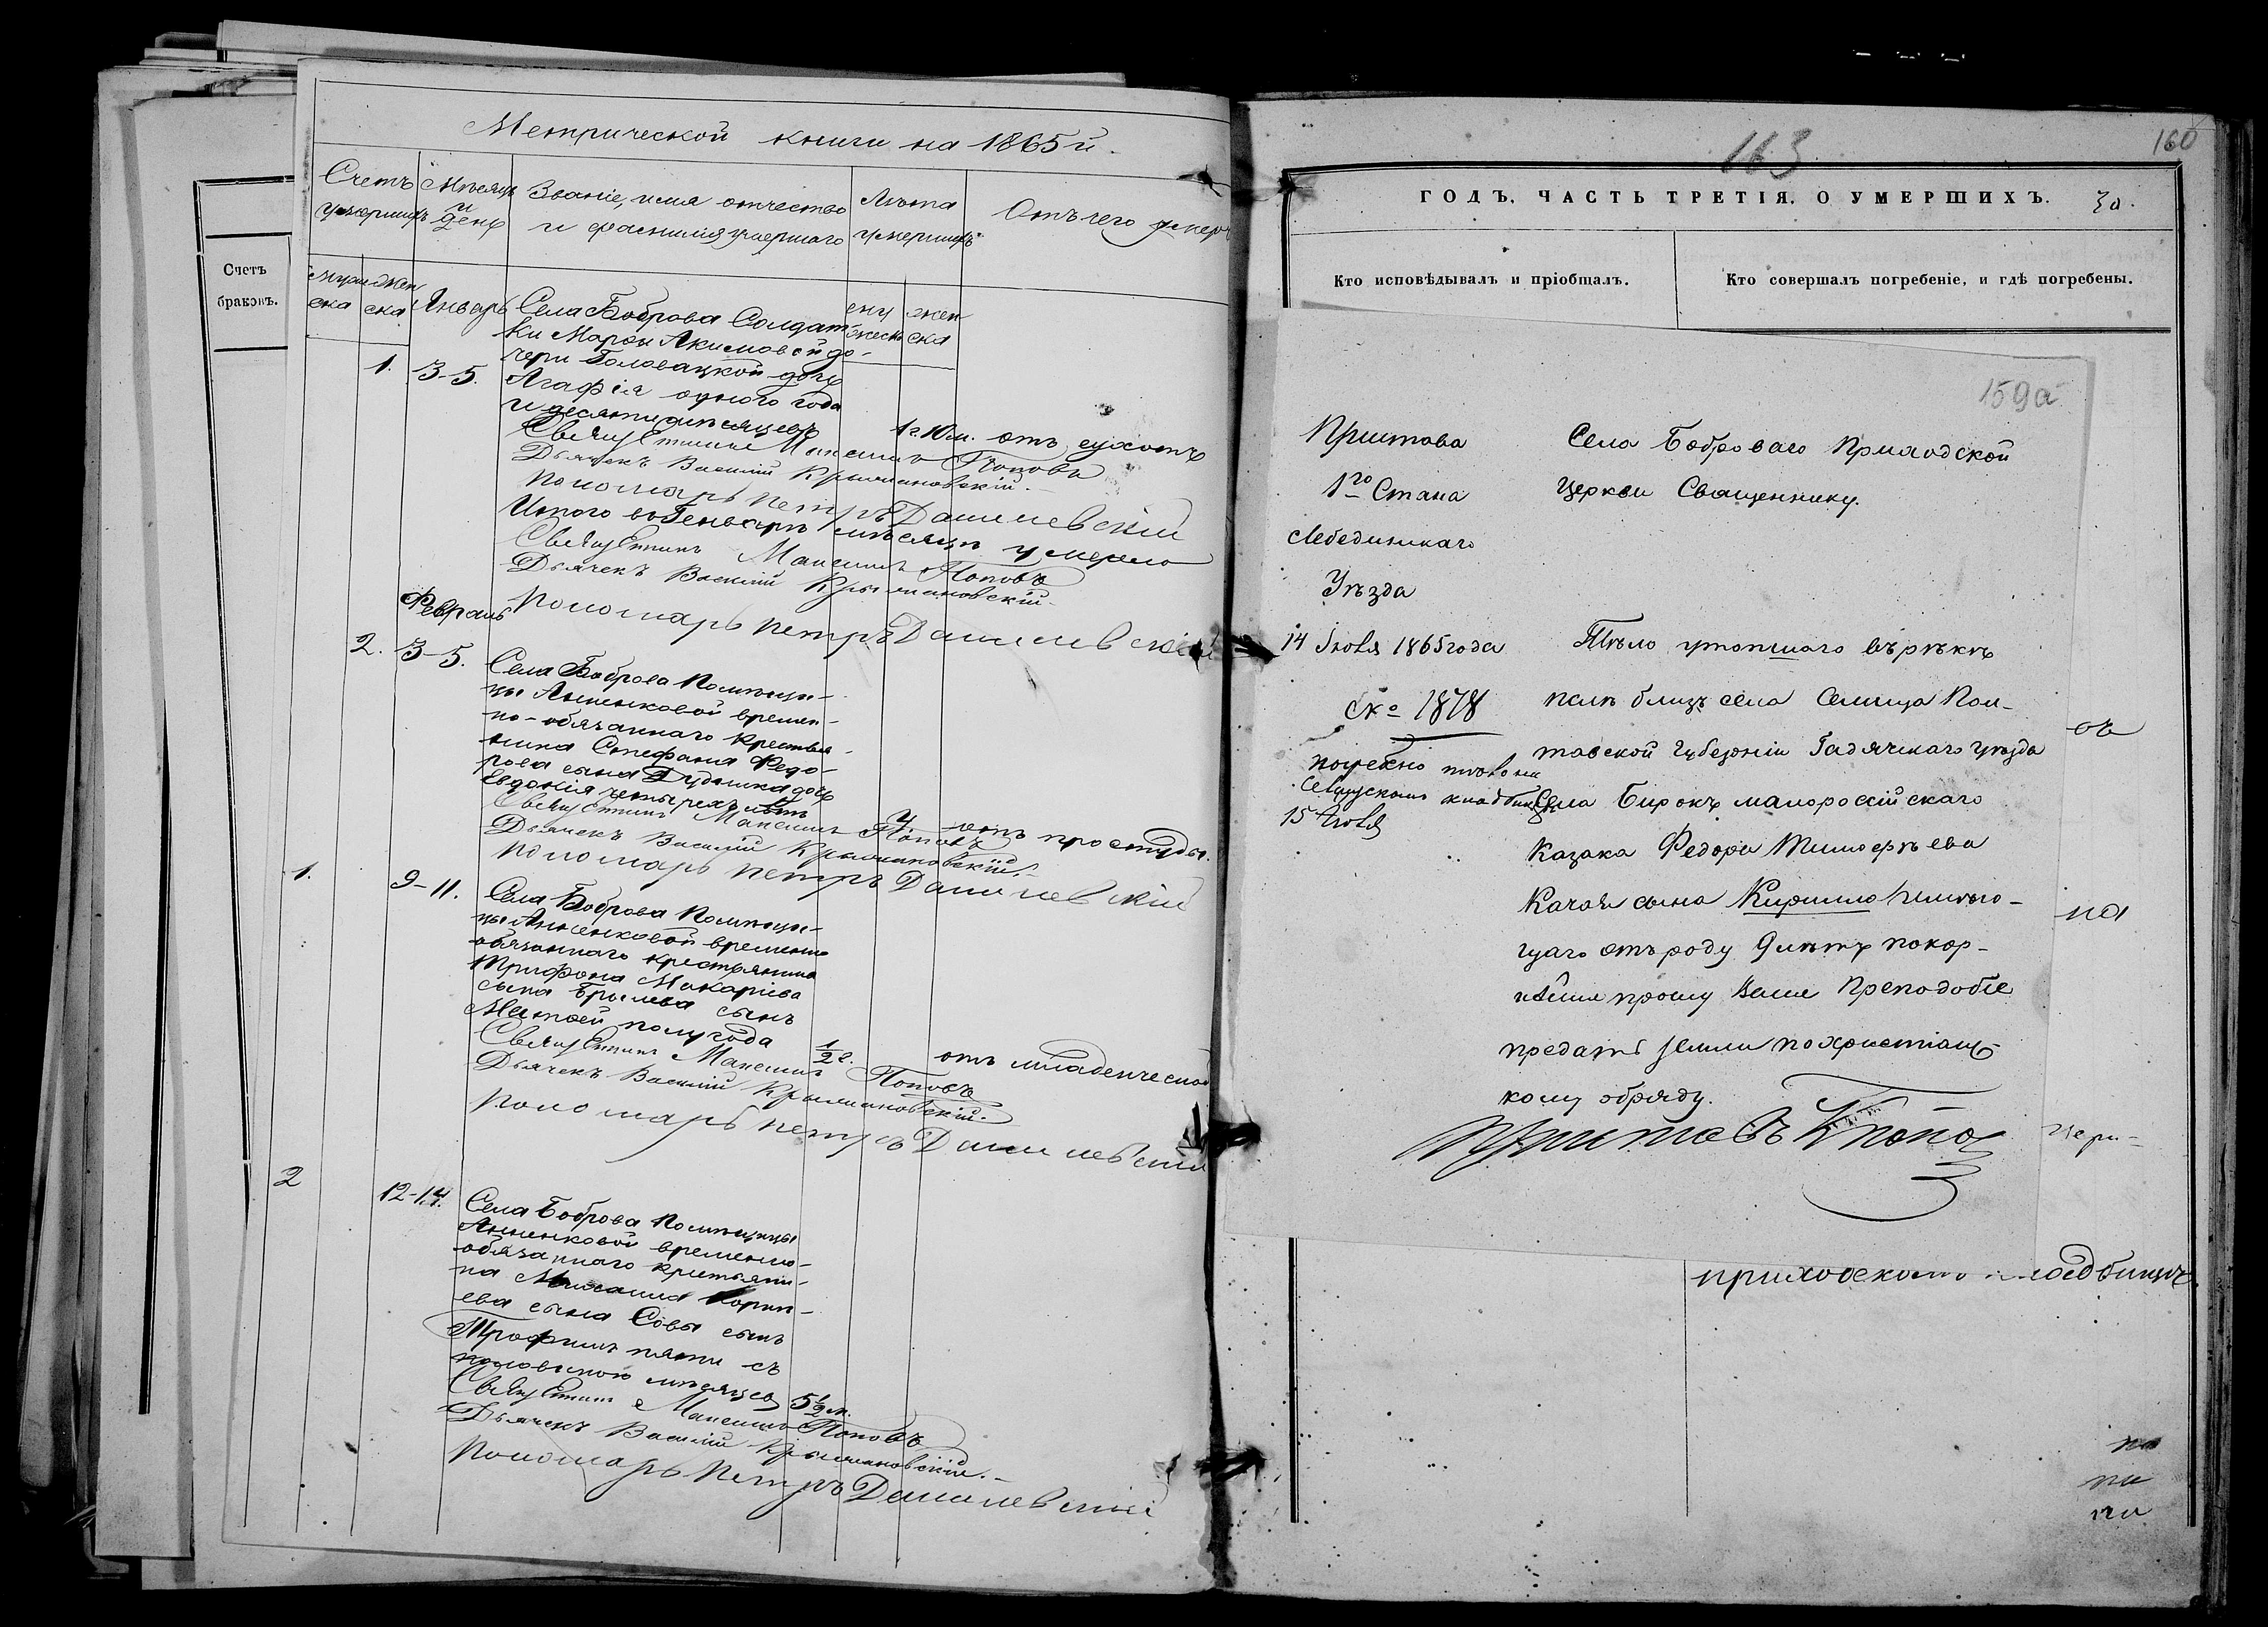 Метрической книги на 1865й.
Счетъ умершихъ
Мѣсяцъ и день
Званіе, имя отчество и фамилія умершаго
Лѣта умершихъ
Отъ чего умеръ
Счетъ
браковъ.
Январь
1.
3-5.
Села Боброва Солдат-
ки Марѳы Акимовой до-
чери Головацкой дочь
Агафія одного года
и десяти мѣсяцевъ
1 г. 10 м. отъ сухотъ
Священникъ Максимъ Поповъ
Дьячекъ Василій Крыжановскій.
Пономарь Петръ Данилевскій
Итого въ Генварѣ мѣсяцѣ умерло
Священникъ Максимъ Поповъ
Дьячекъ Василій Крыжановскій
Пономарь Петръ Данилевскій
Февраль
2.
3-5.
Села Боброва Помѣщи-
цы Анненковой времен-
но-обязаннаго крестья-
нина Стефана Федо-
рова сына Дудника дочь
Евдокія четырехъ лѣтъ
4 отъ простуды.
Священникъ Максимъ Поповъ
Дьячекъ Василій Крыжановскій.
Пономарь Петръ Данилевскій
1.
9-11.
Села Боброва Помѣщи-
цы Анненковой временно
обязаннаго крестьянина
Трифона Макаріева
сына сынъ
Матвей полугода
1/2 г.
отъ младенческой
Священникъ Максимъ Поповъ
Дьячекъ Василій Крыжановскій.
Пономарь Петръ Данилевскій
2
12-14.
Села Боброва Помѣщицы
Анненковой временно-
обязаннаго крестьяни-
на Михаила
ева сына Совы сынъ
Трофимъ пяти съ
половиною мѣсяцевъ
5 1/2 м.
Священникъ Максимъ Поповъ
Дьячекъ Василій Крыжановскій.
Пономарь Петръ Данилевскій
163
160
ГОДЪ, ЧАСТЬ ТРЕТІЯ, О УМЕРШИХЪ.
Кто исповѣдывалъ и пріобщалъ.
Кто совершалъ погребеніе, и гдѣ погребены.
159а
Пристава
1го Стана
Лебединскаго
Уѣзда
14 Іюля 1865 года
№ 1878
погребено тѣло на
кладбищѣ
15 Іюля
Села Боброваго Приходской
Церкви Священнику.
Тѣло утопшаго въ рѣкѣ
Пслѣ близь села Селища Пол-
тавской Губерніи Гадячскаго уѣзда
Села Бирокъ малоросійскаго
Казака Федора Тимофѣева
сына Кирилло имѣю-
щаго отъ роду 9 лѣтъ покор-
нѣйше прошу Ваше Преподобіе
предать земли по христіанс-
кому обряду.
Приставъ
на
приходскомъ кладбищѣ.